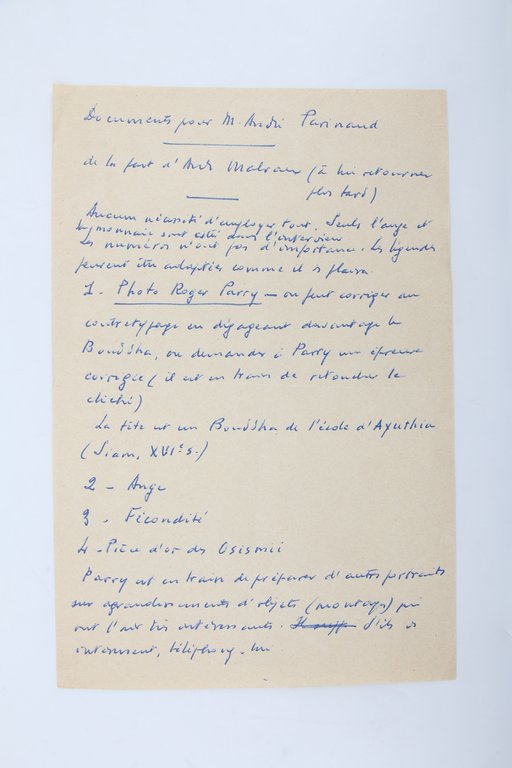 Documents pour M. André Parinaud
de la part d'André Malraux (à lui retourner
plus tard)
Aucune nécessité d'employer tout. Seuls l'ange et
la monnaie sont cités dans l'interview
Les numéros n'ont pas d'importance. Les légendes
peuvent être adaptées comme il s plaira.
1 - Photo Roger Parry - on peut corriger au
contretypage en dégageant davantage le
Bouddha, ou demander à Parry une épreuve
corrigée (il est en train de retoucher le
cliché)
La tête est un Bouddha de l'école d'Ayuthia
(Siam, XVIe s.)
2 - Ange
3 - Fécondité
4 - Pièce d'or des Osismii
Parry est en train de préparer d'autres portraits
sur agrandissements d'objets (montages) qui
ont l'air très intéressants. S'ils
intéressent, téléphonez-lui